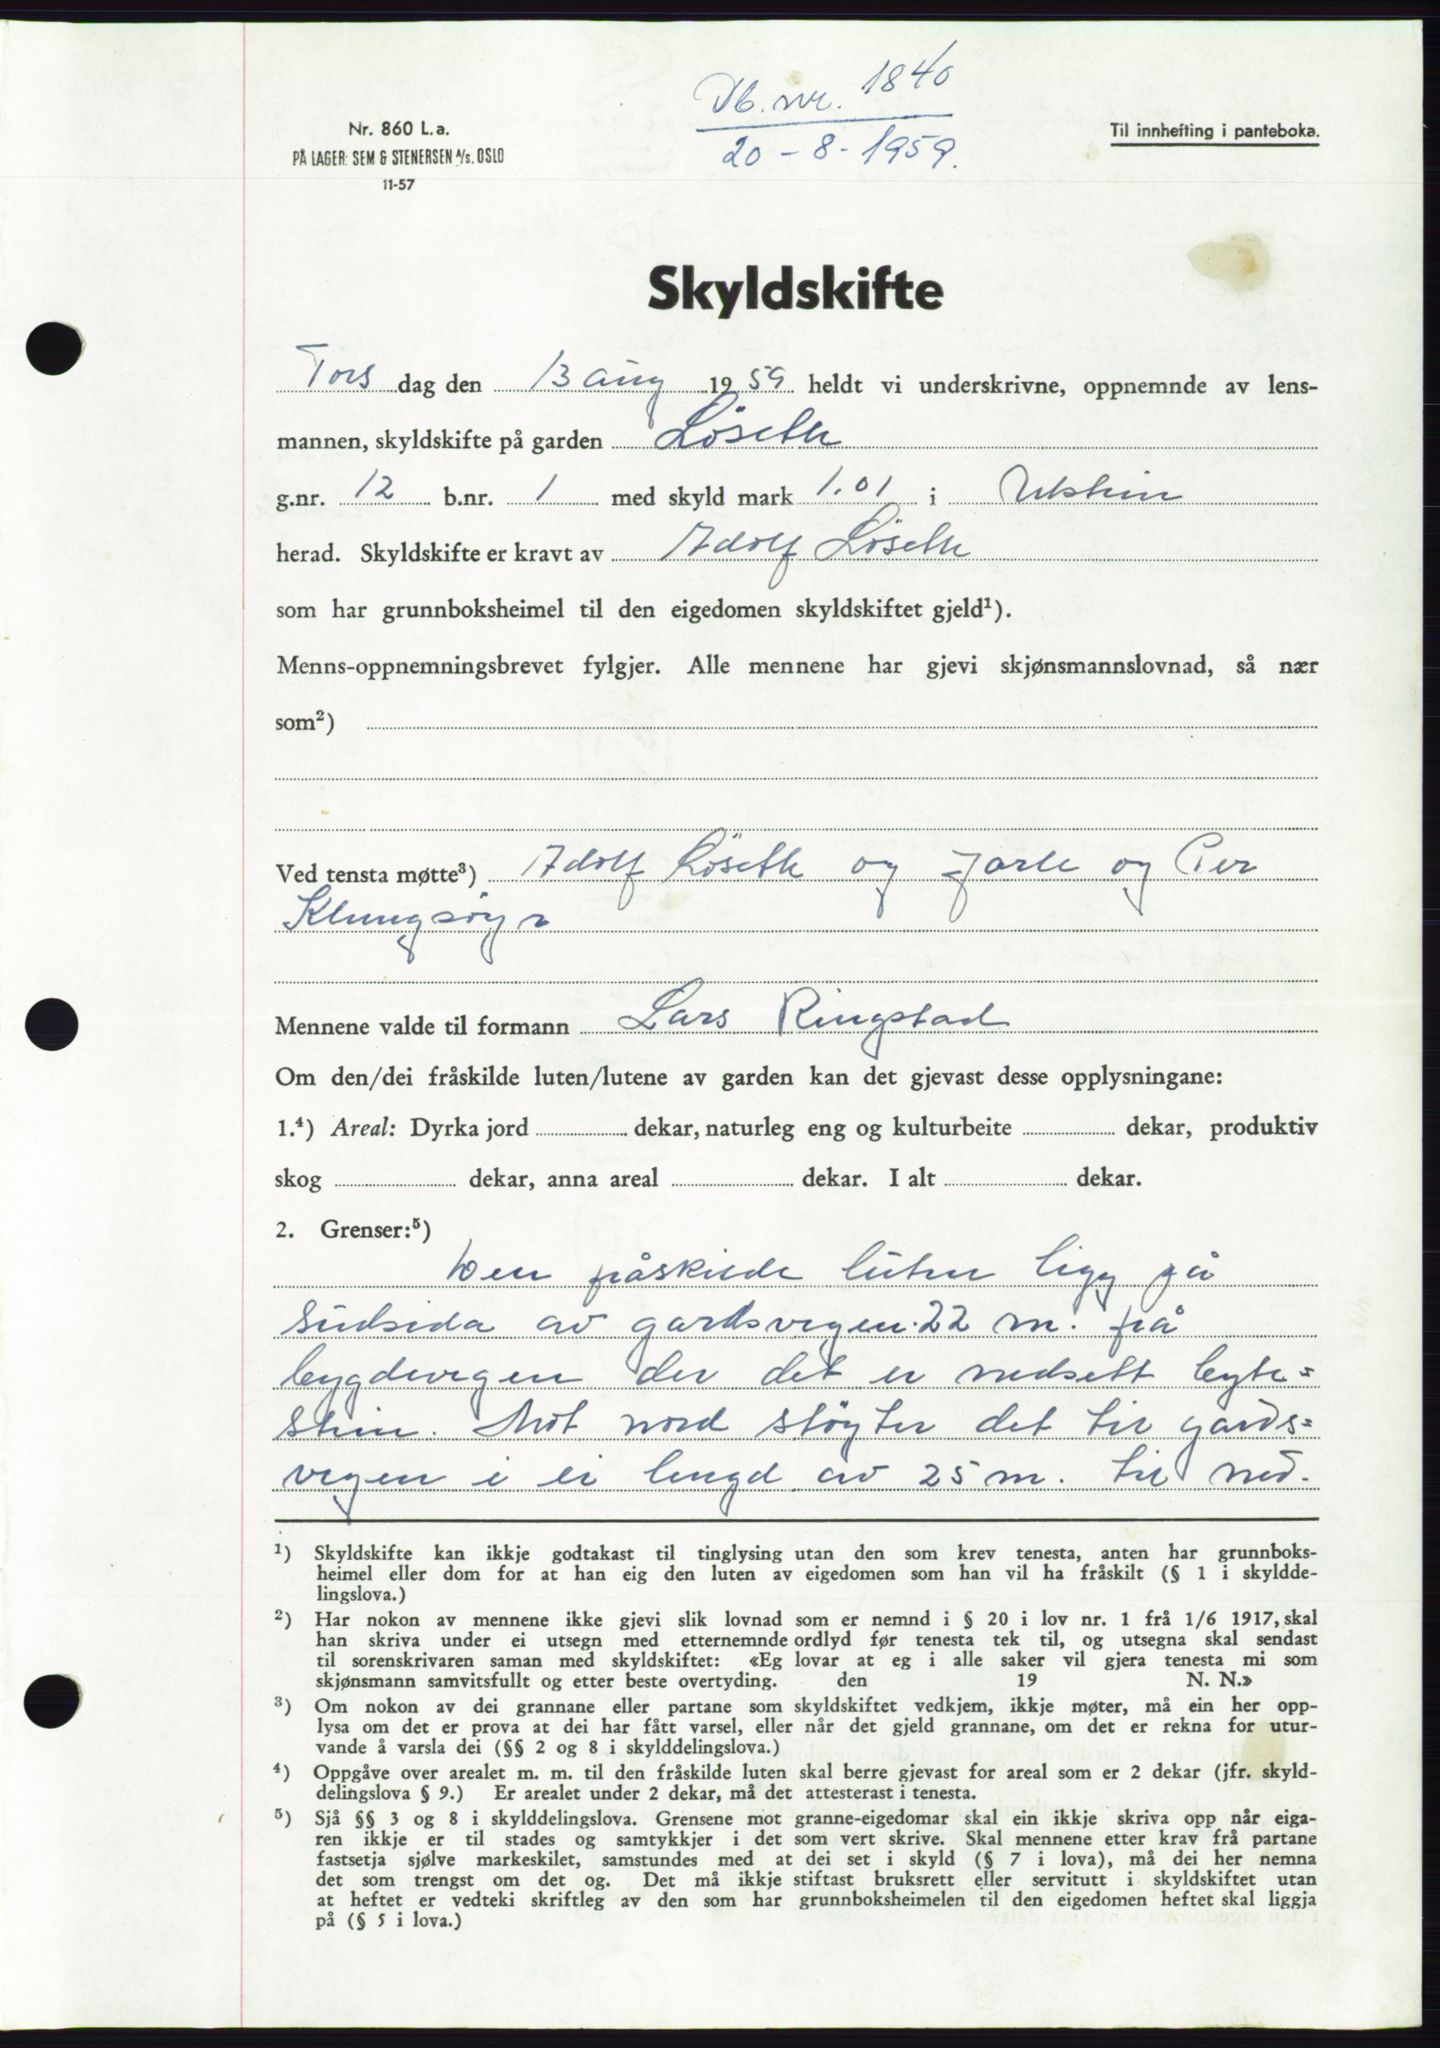 Db. nr. 1840
20-8-1959.
Nr. 860 L.a.
PÅ LAGER: SEM & STENERSEN A/S. OSLO
11-57
Til innhefting i panteboka.
Skyldskifte
Tors dag den 13 aug 1959 heldt vi underskrivne, oppnemnde av lens-
mannen, skyldskifte på garden Löseth
g.nr. 12 b.nr. 1 med skyld mark 1.01 i Ulstein
herad. Skyldskifte er kravt av Adolf Löseth
som har grunnboksheimel til den eigedomen skyldskiftet gjeld¹).
Menns-oppnemningsbrevet fylgjer. Alle mennene har gjevi skjønsmannslovnad, så nær
som²)
Ved tensta møtte³) Adolf Löseth og Jarle og Per
Klungsöyr
Mennene valde til formann Lars Ringstad
Om den/dei fråskilde luten/lutene av garden kan det gjevast desse opplysningane:
1.⁴) Areal: Dyrka jord dekar, naturleg eng og kulturbeite dekar, produktiv
skog dekar, anna areal dekar. I alt dekar.
2. Grenser:⁵)
Den fråskilde luten ligg på
südsida av gardsvegen 22 m. frå
bygdevegen der det er nedsett byte=
stein. Mot nord stöyter det til gards=
vegen i ei lengd av 25 m. til ned-
¹) Skyldskifte kan ikkje godtakast til tinglysing utan den som krev tenesta, anten har grunnboks-
heimel eller dom for at han eig den luten av eigedomen som han vil ha fråskilt (§ 1 i skyldde-
lingslova.)
²) Har nokon av mennene ikke gjevi slik lovnad som er nemnd i § 20 i lov nr. 1 frå 1/6 1917, skal
han skriva under ei utsegn med etternemnde ordlyd før tenesta tek til, og utsegna skal sendast
til sorenskrivaren saman med skyldskiftet: «Eg lovar at eg i alle saker vil gjera tenesta mi som
skjønsmann samvitsfullt og etter beste overtyding. den 19 N. N.»
³) Om nokon av dei grannane eller partane som skyldskiftet vedkjem, ikkje møter, må ein her opp-
lysa om det er prova at dei har fått varsel, eller når det gjeld grannane, om det er rekna for utur-
vande å varsla dei (§§ 2 og 8 i skylddelingslova.)
⁴) Oppgåve over arealet m. m. til den fråskilde luten skal berre gjevast for areal som er 2 dekar (jfr. skyld-
delingslova § 9.) Er arealet under 2 dekar, må det attesterast i tenesta.
⁵) Sjå §§ 3 og 8 i skylddelingslova. Grensene mot granne-eigedomar skal ein ikkje skriva opp når eiga-
ren ikkje er til stades og samtykkjer i det som vert skrive. Skal mennene etter krav frå partane
fastsetja sjølve markeskilet, samstundes med at dei set i skyld (§ 7 i lova), må dei her nemna
det som trengst om det og. Det må ikkje stiftast bruksrett eller servitutt i skyldskiftet utan
at heftet er vedteki skriftleg av den som har grunnboksheimelen til den eigedomen heftet skal liggja
på (§ 5 i lova.)